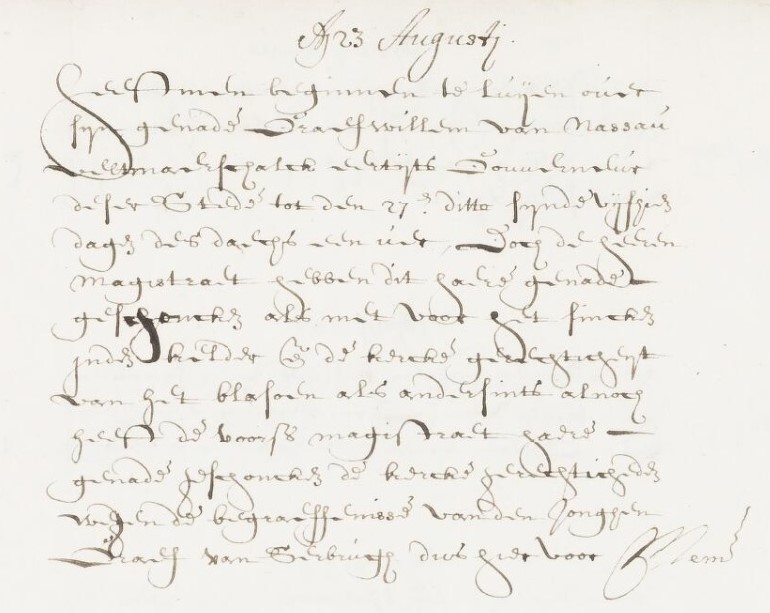 A 23 Augustj.
Heeft men beginnen te luijen over
sijn genade Graef willem van Nassau
veltmaerschalck eertyts Gouverneur
deser Stede tot den 27en ditto sijnde vijftien
dagen des daechs een uer, Doch de heeren
magistraet hebben dit haere genade
geschoncken als met voor het sincken
inden kelder en de kercke gerechticheyt
van het blasoen als andersints alnoch
heeft de voors magistraet haere
genade geschoncken de kercke gerechticheden
wegen de begraeffenisse vanden Jonghen
Graef van Serbruch dus hier voor Mem